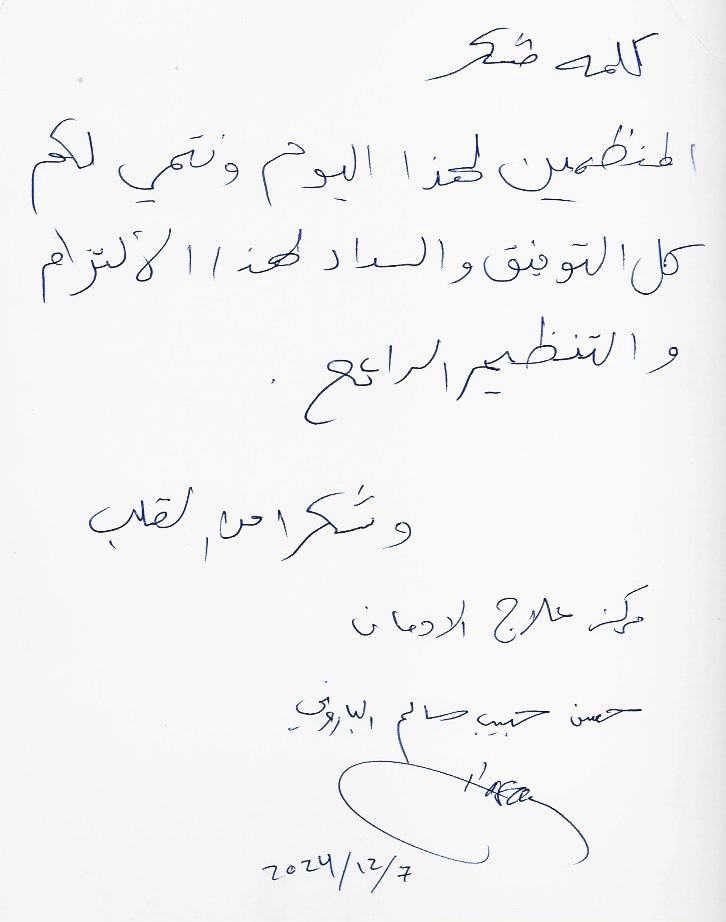 كلمه شكر
المنظمين لهذا اليوم ونتمي لكم
كل التوفيق والسداد لهذا الألتزام
والتنظيم الرائع .
وشكرا من القلب
مركز علاج الادمان
حسن حبيب سالم الباروني
2024/12/7